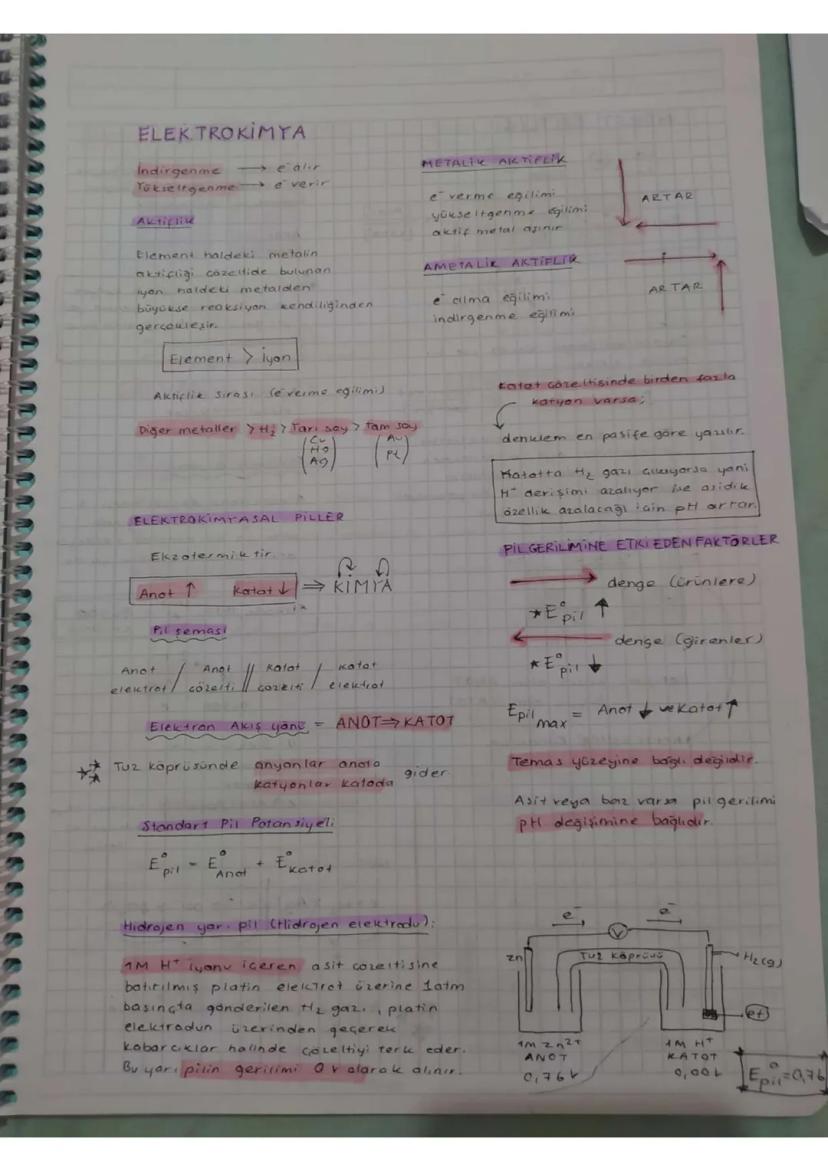 ELEKTROKİMYA
İndirgenme → e⁻ alır
Yükseltgenme → e⁻ verir
Aktiflik
Element haldeki metalin
aktifliği çözeltide bulunan
iyon haldeki metalden
büyükse reaksiyon kendiliğinden
gerçekleşir.
Element > iyon
Aktiflik sırası (e⁻ verme eğilimi)
Diğer metaller > H₂ > Yarı soy > Tam soy
(Cu Hg Ag) (Au Pt)
ELEKTROKİMYASAL PİLLER
Ekzotermiktir.
Anot ↑ Katot ↓ ⇒ KİMYA
Pil şeması
Anot / Anot // Katot / Katot
elektrot / çözelti // çözelti / elektrot
Elektron Akış yönü = ANOT ⇒ KATOT
Tuz köprüsünde anyonlar anota
katyonlar katoda gider
Standart Pil Potansiyeli
E°pil = E°Anot + E°Katot
Hidrojen yarı pil (Hidrojen elektrodu):
1M H⁺ iyonu içeren asit çözeltisine
batırılmış platin elektrot üzerine 1atm
basınçta gönderilen H₂ gazı, platin
elektrodun üzerinden geçerek
kabarcıklar halinde çözeltiyi terk eder.
Bu yarı pilin gerilimi 0 V olarak alınır.
METALİK AKTİFLİK
e⁻ verme eğilimi
yükseltgenme eğilimi
aktif metal aşınır
ARTAR
AMETALİK AKTİFLİK
e⁻ alma eğilimi
indirgenme eğilimi
ARTAR
Katot çözeltisinde birden fazla
katyon varsa;
denklem en pasife göre yazılır.
Katotta H₂ gazı çıkıyorsa yani
H⁺ derişimi azalıyor ise asidik
özellik azalacağı için pH artar.
PİL GERİLİMİNE ETKİ EDEN FAKTÖRLER
→ denge (ürünlere)
*E°pil ↑
← denge (girenler)
*E°pil ↓
Epil max = Anot ↓ ve Katot ↑
Temas yüzeyine bağlı değildir.
Asit veya baz varsa pil gerilimi
pH değişimine bağlıdır.
e⁻ e⁻
V
Zn Tuz köprüsü H₂(g)
Pt
1M Zn²⁺ 1M H⁺
ANOT KATOT
0,76V 0,00V
E°pil = 0,76